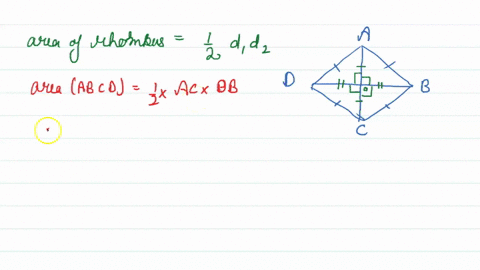 area of rhombus = 1/2 d₁d₂
area (ABCD) = 1/2 × AC × DB
A
D
B
C